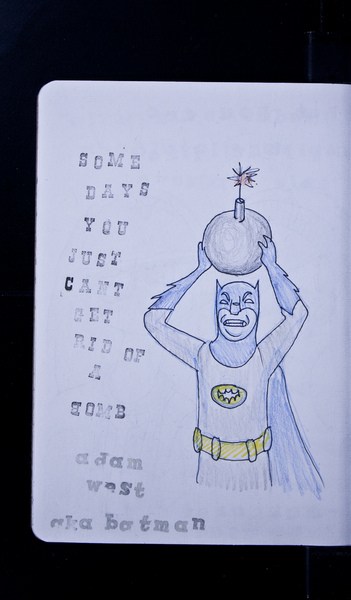 SOME
DAYS
YOU
JUST
CANT
GET
RID OF
A
BOMB
adam
west
aka batman